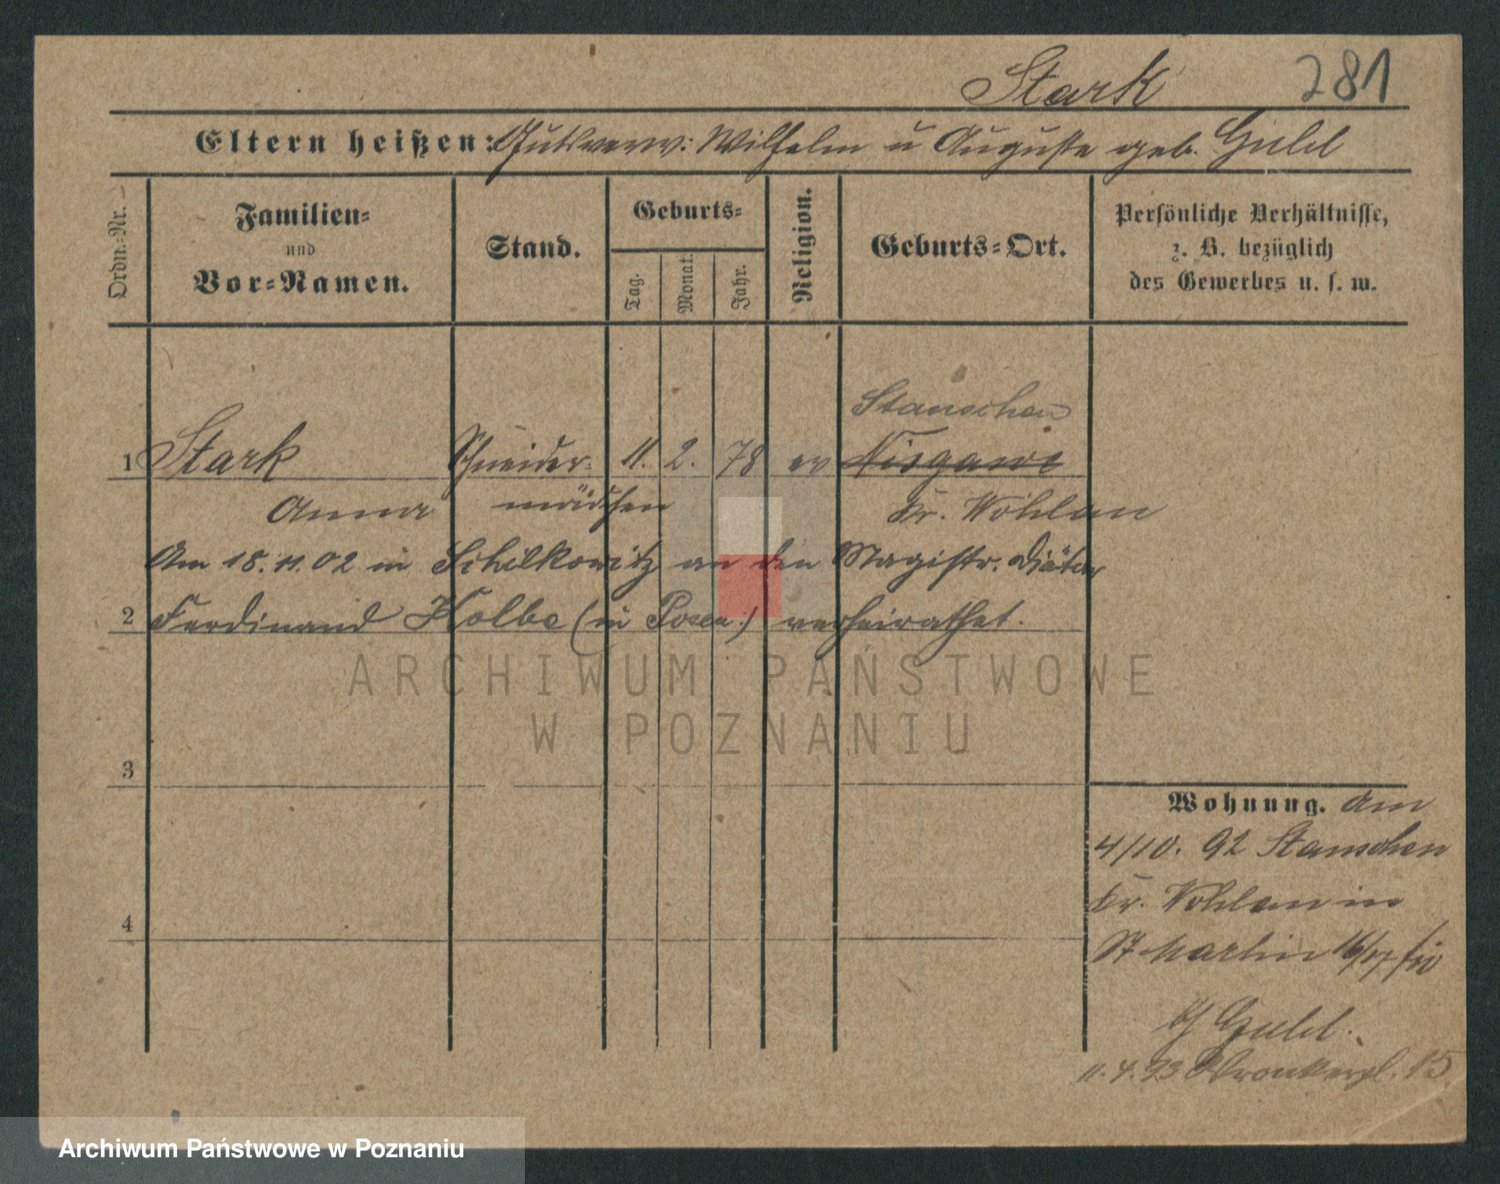 Stark 281
Eltern heißen: Gutsverw: Wilhelm u Auguste geb. Guhl
Ordn.-Nr.
Familien-
und
Vor-Namen.
Stand.
Geburts-
Tag. Monat. Jahr.
Religion.
Geburts-Ort.
Persönliche Verhältnisse,
z. B. bezüglich
des Gewerbes u. s. w.
Stanschen
1 Stark Schneider- 11. 2. 78 ev Nisgawe
Anna mädchen Kr. Wohlau
Am 18. 11. 02 in Schilkowitz an den Magistr. Diätar
2 Ferdinand Kolbe (in Posen) verheirathet.
ARCHIWUM PAŃSTWOWE
W POZNANIU
3
Wohnung. Am
4/10. 92 Stanschen
Kr. Wohlau in
4 St Martin
Guhl.
11. 4. 93 15
Archiwum Państwowe w Poznaniu